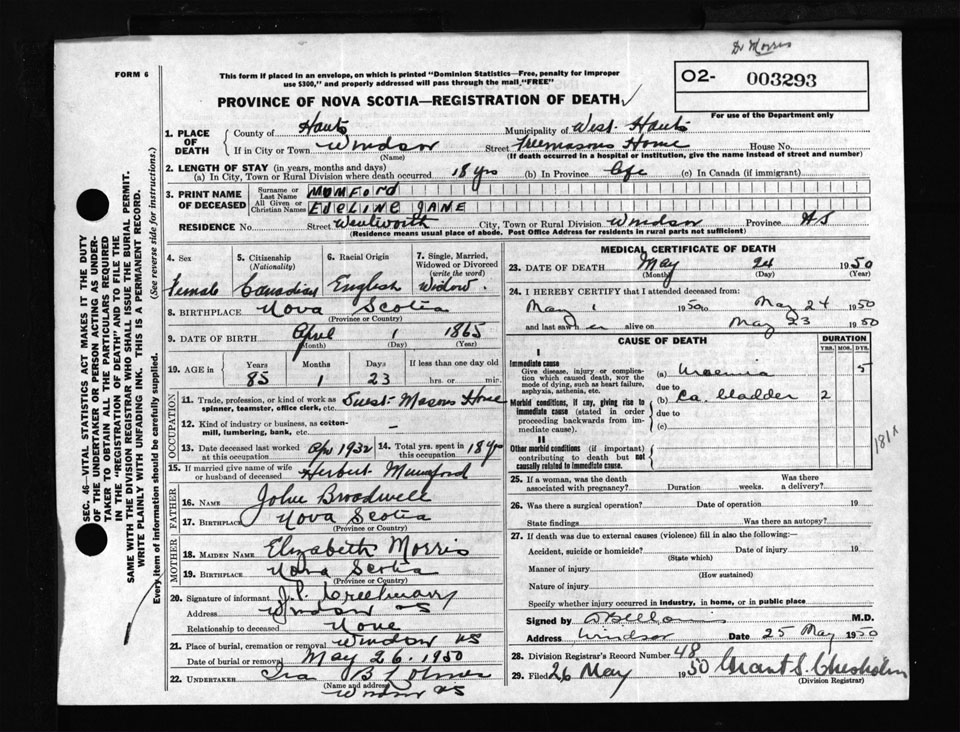 Dr Morris
FORM 6
This form if placed in an envelope, on which is printed "Dominion Statistics—Free, penalty for improper
use $300," and properly addressed will pass through the mail "FREE"
O2- 003293
For use of the Department only
PROVINCE OF NOVA SCOTIA—REGISTRATION OF DEATH
1. PLACE OF DEATH
County of Hants Municipality of West Hants
If in City or Town Windsor Street Freemasons Home House No.
(Name) (If death occurred in a hospital or institution, give the name instead of street and number)
2. LENGTH OF STAY (in years, months and days)
(a) In City, Town or Rural Division where death occurred 18 yrs (b) In Province Life (c) In Canada (if immigrant)
3. PRINT NAME OF DECEASED
Surname or Last Name MUMFORD
All Given or Christian Names EDELINE JANE
RESIDENCE No. Street Wentworth City, Town or Rural Division Windsor Province NS
(Residence means usual place of abode. Post Office Address for residents in rural parts not sufficient)
4. Sex Female
5. Citizenship (Nationality) Canadian
6. Racial Origin English
7. Single, Married, Widowed or Divorced (write the word) Widow.
8. BIRTHPLACE Nova Scotia
(Province or Country)
9. DATE OF BIRTH April 1 1865
(Month) (Day) (Year)
10. AGE in Years Months Days If less than one day old
85 1 23 hrs. or min.
OCCUPATION
11. Trade, profession, or kind of work as spinner, teamster, office clerk, etc. Guest- Masons Home
12. Kind of industry or business, as cotton-mill, lumbering, bank, etc. –
13. Date deceased last worked at this occupation Apr 1932 14. Total yrs. spent in this occupation 18 yrs
15. If married give name of wife or husband of deceased Herbert Mumford
FATHER
16. NAME John Broadwell
17. BIRTHPLACE Nova Scotia
(Province or Country)
MOTHER
18. MAIDEN NAME Elizabeth Morris
19. BIRTHPLACE Nova Scotia
(Province or Country)
20. Signature of informant J. P. Creelman
Address Windsor NS
Relationship to deceased None
21. Place of burial, cremation or removal Windsor NS
Date of burial or removal May 26, 1950
22. UNDERTAKER Ira B
(Name and address) Windsor NS
MEDICAL CERTIFICATE OF DEATH
23. DATE OF DEATH May 24 1950
(Month) (Day) (Year)
24. I HEREBY CERTIFY that I attended deceased from:
May 1 1950 to May 24 1950
and last saw her alive on May 23 1950
CAUSE OF DEATH
DURATION
YRS. MOS. DYS.
I
Immediate cause
Give disease, injury or complication which caused death, NOT the mode of dying, such as heart failure, asphyxia, asthenia, etc.
(a) Uraemia 5
due to
Morbid conditions, if any, giving rise to immediate cause (stated in order proceeding backwards from immediate cause).
(b) Ca. bladder 2
due to
(c)
II
Other morbid conditions (if important) contributing to death but not causally related to immediate cause.
181A
25. If a woman, was the death associated with pregnancy? Duration weeks. Was there a delivery?
26. Was there a surgical operation? Date of operation 19
State findings Was there an autopsy?
27. If death was due to external causes (violence) fill in also the following:—
Accident, suicide or homicide? Date of injury 19
(State which)
Manner of injury
(How sustained)
Nature of injury
Specify whether injury occurred in industry, in home, or in public place
Signed by M.D.
Address Windsor Date 25 May 1950
28. Division Registrar's Record Number 48
29. Filed 26 May 1950 Grant S. Chisholm
(Division Registrar)
SEC. 46—VITAL STATISTICS ACT MAKES IT THE DUTY
OF THE UNDERTAKER OR PERSON ACTING AS UNDER-
TAKER TO OBTAIN ALL THE PARTICULARS REQUIRED
IN THE "REGISTRATION OF DEATH" AND TO FILE THE
SAME WITH THE DIVISION REGISTRAR WHO SHALL ISSUE THE BURIAL PERMIT.
WRITE PLAINLY WITH UNFADING INK. THIS IS A PERMANENT RECORD.
Every item of information should be carefully supplied. (See reverse side for instructions.)